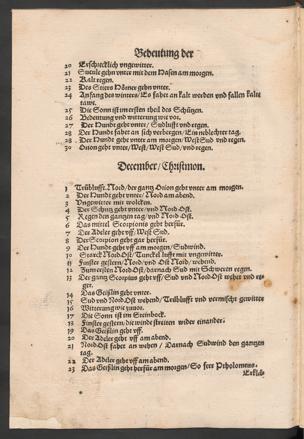 Bedeutung der
20 Erschrecklich vngewitter.
21 Sucule gehn vnter mit dem Hasen am morgen.
22 Kalt regen.
23 Des Stiers Hörner gehn vnter.
24 Anfang des winters/ Es fahet an kalt werden vnd fallen kalte
taw.
25 Die Sonn ist im ersten theil des Schützen.
26 Bedeutung vnd witterung wie vor.
27 Der Hundt geht vnter/ Sudlufft vnd regen.
28 Der Hundt fahet an sich verbergen/ Ein neblechter tag.
28 Der Hundt gehe vnter am morgen/ West Sud vnd regen.
30 Orion geht vnter/ West/ West Sud/ vnd regen.
December/ Christmon.
1 Trüblufft Nord/ der gantz Orion geht vnter am morgen.
2 Der Hundt geht vnter/ Nord am abend.
3 Vngewitter mit wolcken.
4 Der Schütz geht vnter/ vnd Nord Ost.
5 Regen den gantzen tag/ vnd Nord Ost.
6 Das mittel Scorpionis geht herfür.
7 Der Adeler geht vff. West Sud.
8 Der Scorpion geht gar herfür.
9 Der Hundt geht vff am morgen/ Sudwind.
10 Starck Nord Ost/ Dunckel lufft mit vngewitter.
11 Finster gestirn/ Nord/ vnd Ost Nord/ wehend.
12 Zum ersten Nord Ost/ darnach Sud mit Schween regen.
13 Der gantz Scorpius geht vff/ Sud vnd Nord Ost wehet vnd re-
get.
14 Das Geißlin geht vnter.
15 Sud vnd Nord Ost wehend/ Trüblufft vnd vermischt gewitter
16 Witterung wie zuuor.
17 Die Sonn ist im Steinbock.
18 Finster gestirn/ die winde streiten wider einander.
19 Das Geißlin geht vff.
20 Der Adeler geht vff am abend.
21 Nord Ost fahet an wehen/ Darnach Sudwind den gantzen
tag.
22 Der Adeler geht vff am abend.
23 Das Geißlin geht herfür am morgen/ So ferr Ptholomeus